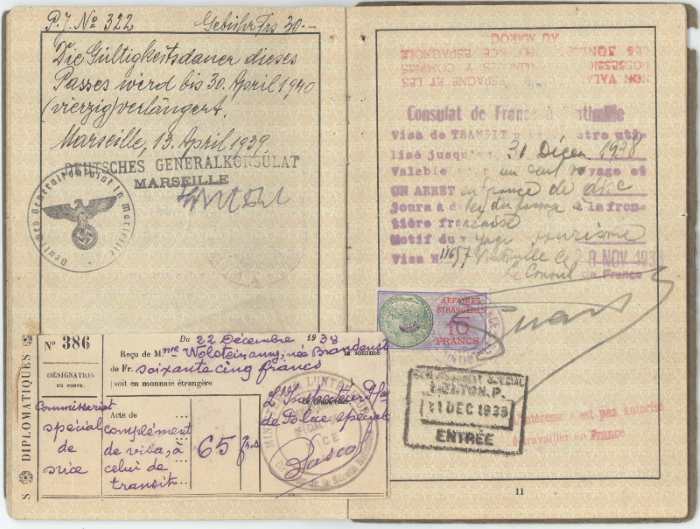 P. J. No 322 Gebühr Frs 30.—
Die Gültigkeitsdauer dieses
Passes wird bis 30. April 1940
(vierzig) verlängert.
Marseille, 13. April 1939.
DEUTSCHES GENERALKONSULAT
MARSEILLE
Deutsches Generalkonsulat in Marseille
S DIPLOMATIQUES
N° 386
DÉSIGNATION
DU POSTE.
Commissariat
spécial
de
Nice
Du 22 Décembre 1938
Reçu de Mme née la somme
de Fr. soixante cinq francs
(soit en monnaie étrangère
Acte de
complément
de visa, à
celui de
transit
65 frs
L'Inspecteur
de Police spéciale
NON VALA
ESPAGNE ET LES
POSSESSI
ESPAGNOLE
LES ZONE
AU MAROC
Consulat de France à Vintimille
Visa de TRANSIT
lisé jusqu'au 31 Décem 1938
Valable pour un seul voyage et
UN ARRET en France de dix
jours à de la fron-
tière française
Motif du voyage tourisme
Visa N° 11657 Vintimille le 28 NOV 1938
Le Consul de France
AFFAIRES
ETRANGERES
10
FRANCS
SPECIAL
MENTON.P.
DEC 1938
ENTRÉE
L'intéressé n'est pas autorisé
à travailler en France
11